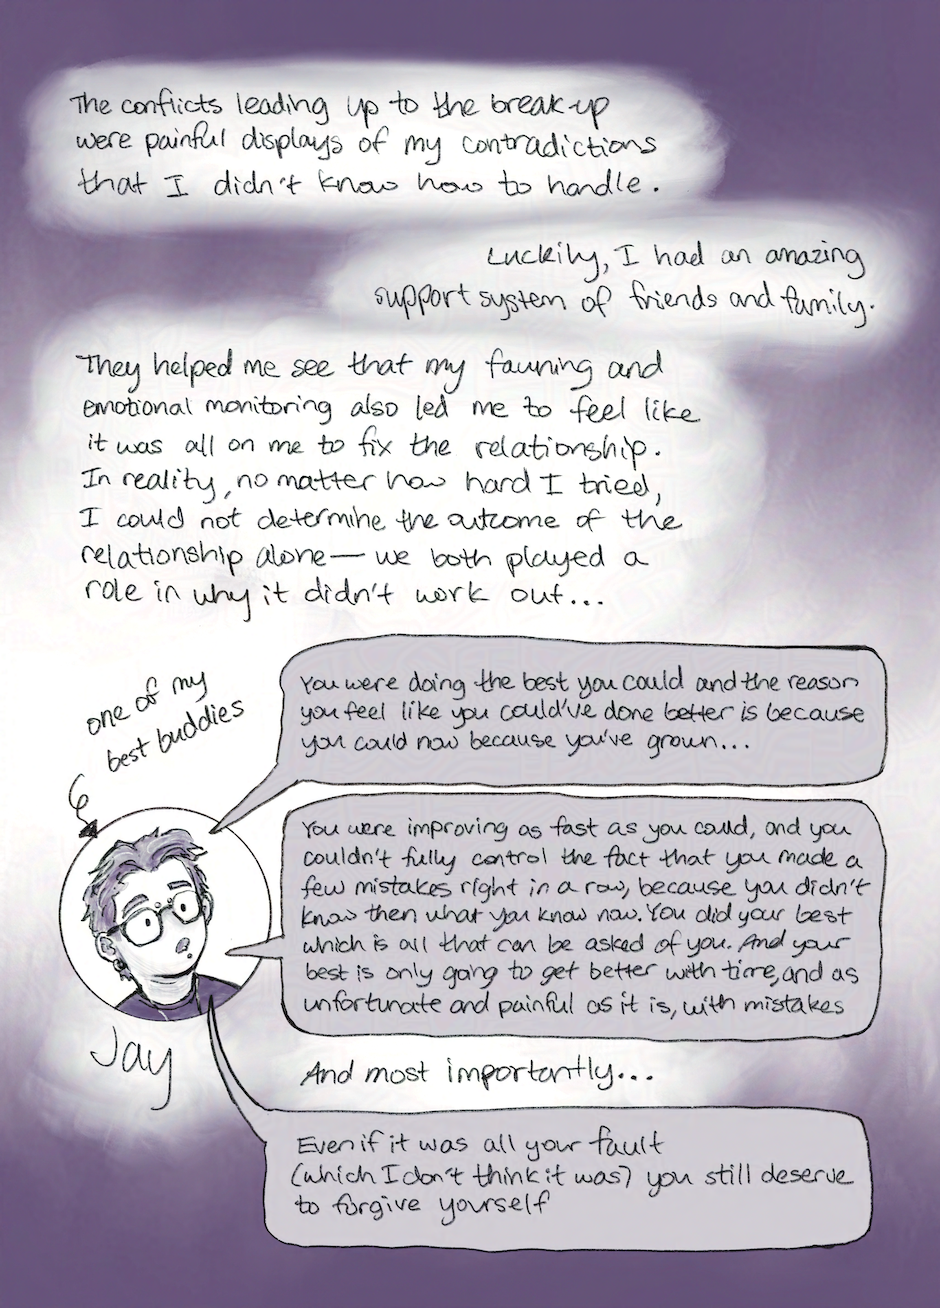 The conflicts leading up to the break-up
were painful displays of my contradictions
that I didn't know how to handle.
Luckily, I had an amazing
support system of friends and family.
They helped me see that my fawning and
emotional monitoring also led me to feel like
it was all on me to fix the relationship.
In reality, no matter how hard I tried,
I could not determine the outcome of the
relationship alone — we both played a
role in why it didn't work out...
one of my
best buddies
You were doing the best you could and the reason
you feel like you could've done better is because
you could now because you've grown...
You were improving as fast as you could, and you
couldn't fully control the fact that you made a
few mistakes right in a row, because you didn't
know then what you know now. You did your best
which is all that can be asked of you. And your
best is only going to get better with time, and as
unfortunate and painful as it is, with mistakes
Jay
And most importantly...
Even if it was all your fault
(which I don't think it was) you still deserve
to forgive yourself